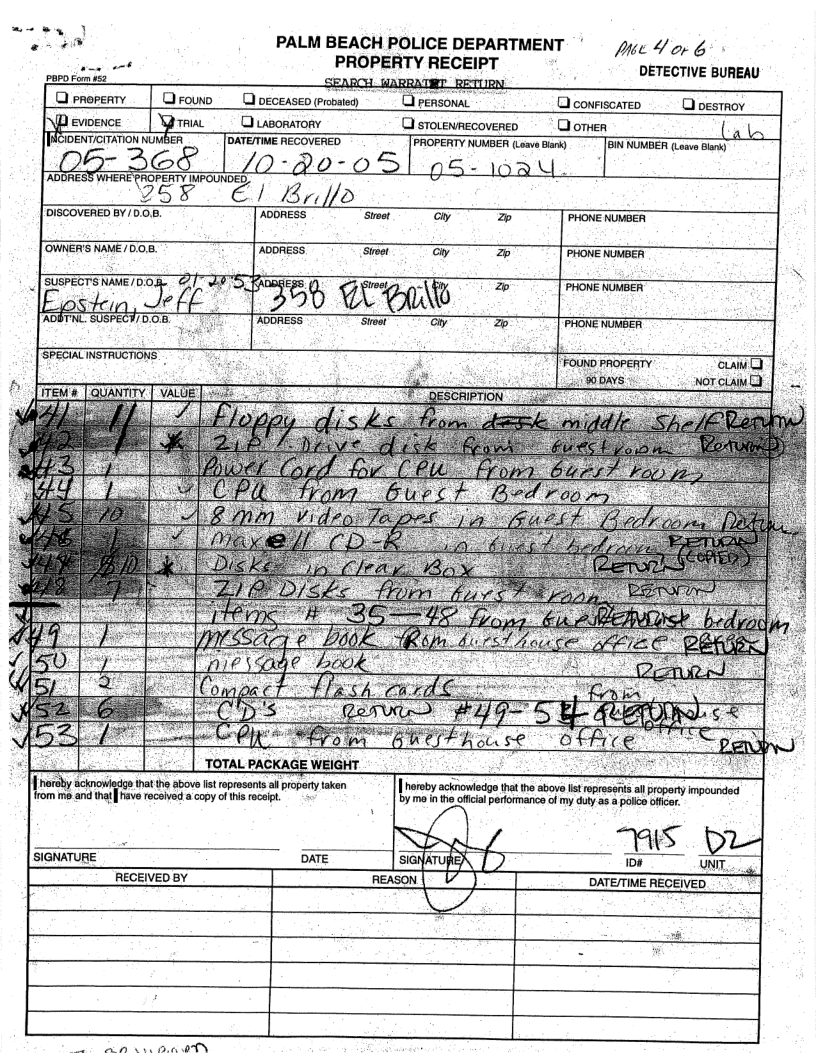 PALM BEACH POLICE DEPARTMENT
PAGE 4 OF 6
PROPERTY RECEIPT
DETECTIVE BUREAU
PBPD Form #52
SEARCH WARRANT RETURN
PROPERTY FOUND DECEASED (Probated) PERSONAL CONFISCATED DESTROY
EVIDENCE TRIAL LABORATORY STOLEN/RECOVERED OTHER Lab
INCIDENT/CITATION NUMBER DATE/TIME RECOVERED PROPERTY NUMBER (Leave Blank) BIN NUMBER (Leave Blank)
05-368 10-20-05 05-1024
ADDRESS WHERE PROPERTY IMPOUNDED
258 El Brillo
DISCOVERED BY / D.O.B. ADDRESS Street City Zip PHONE NUMBER
OWNER'S NAME / D.O.B. ADDRESS Street City Zip PHONE NUMBER
SUSPECT'S NAME / D.O.B. 01-20-53 ADDRESS Street City Zip PHONE NUMBER
Epstein, Jeff 358 El Brillo
ADDT'NL. SUSPECT / D.O.B. ADDRESS Street City Zip PHONE NUMBER
SPECIAL INSTRUCTIONS FOUND PROPERTY CLAIM
90 DAYS NOT CLAIM
ITEM # QUANTITY VALUE DESCRIPTION
41 11 Floppy disks from desk middle shelf Return
42 1 ZIP Drive disk from Guestroom Return
43 1 Power Cord for CPU from Guest room
44 1 CPU from Guest Bedroom
45 10 8mm video Tapes in Guest Bedroom Return
46 1 maxell CD-R in Guest bedroom RETURN
(COPIED)
47 10 Disks in Clear Box RETURN
48 7 ZIP Disks from Guest room RETURN
items # 35-48 from bedroom
49 1 message book from Guesthouse office RETURN
50 1 message book RETURN
51 2 Compact flash cards from
52 6 CD's RETURN #49-54 office
53 1 CPU from Guesthouse office RETURN
TOTAL PACKAGE WEIGHT
I hereby acknowledge that the above list represents all property taken
from me and that I have received a copy of this receipt.
I hereby acknowledge that the above list represents all property impounded
by me in the official performance of my duty as a police officer.
7915 D2
SIGNATURE DATE SIGNATURE ID# UNIT
RECEIVED BY REASON DATE/TIME RECEIVED